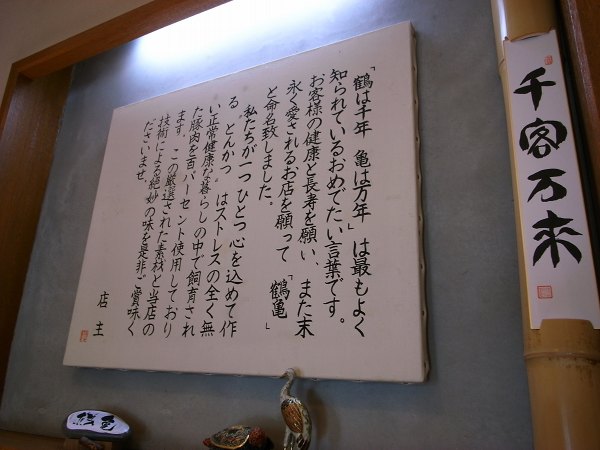 「鶴は千年　亀は万年」は最もよく
知られているおめでたい言葉です。
お客様の健康と長寿を願い、また末
永く愛されるお店を願って　「鶴亀」
と命名致しました。
私たちが一つひとつ心を込めて作
る〝とんかつ〟はストレスの全く無
い正常健康な暮らしの中で飼育され
た豚肉を百パーセント使用しており
ます。この厳選された素材と当店の
技術による絶妙の味を是非ご賞味く
ださいませ。
店主
千客万来